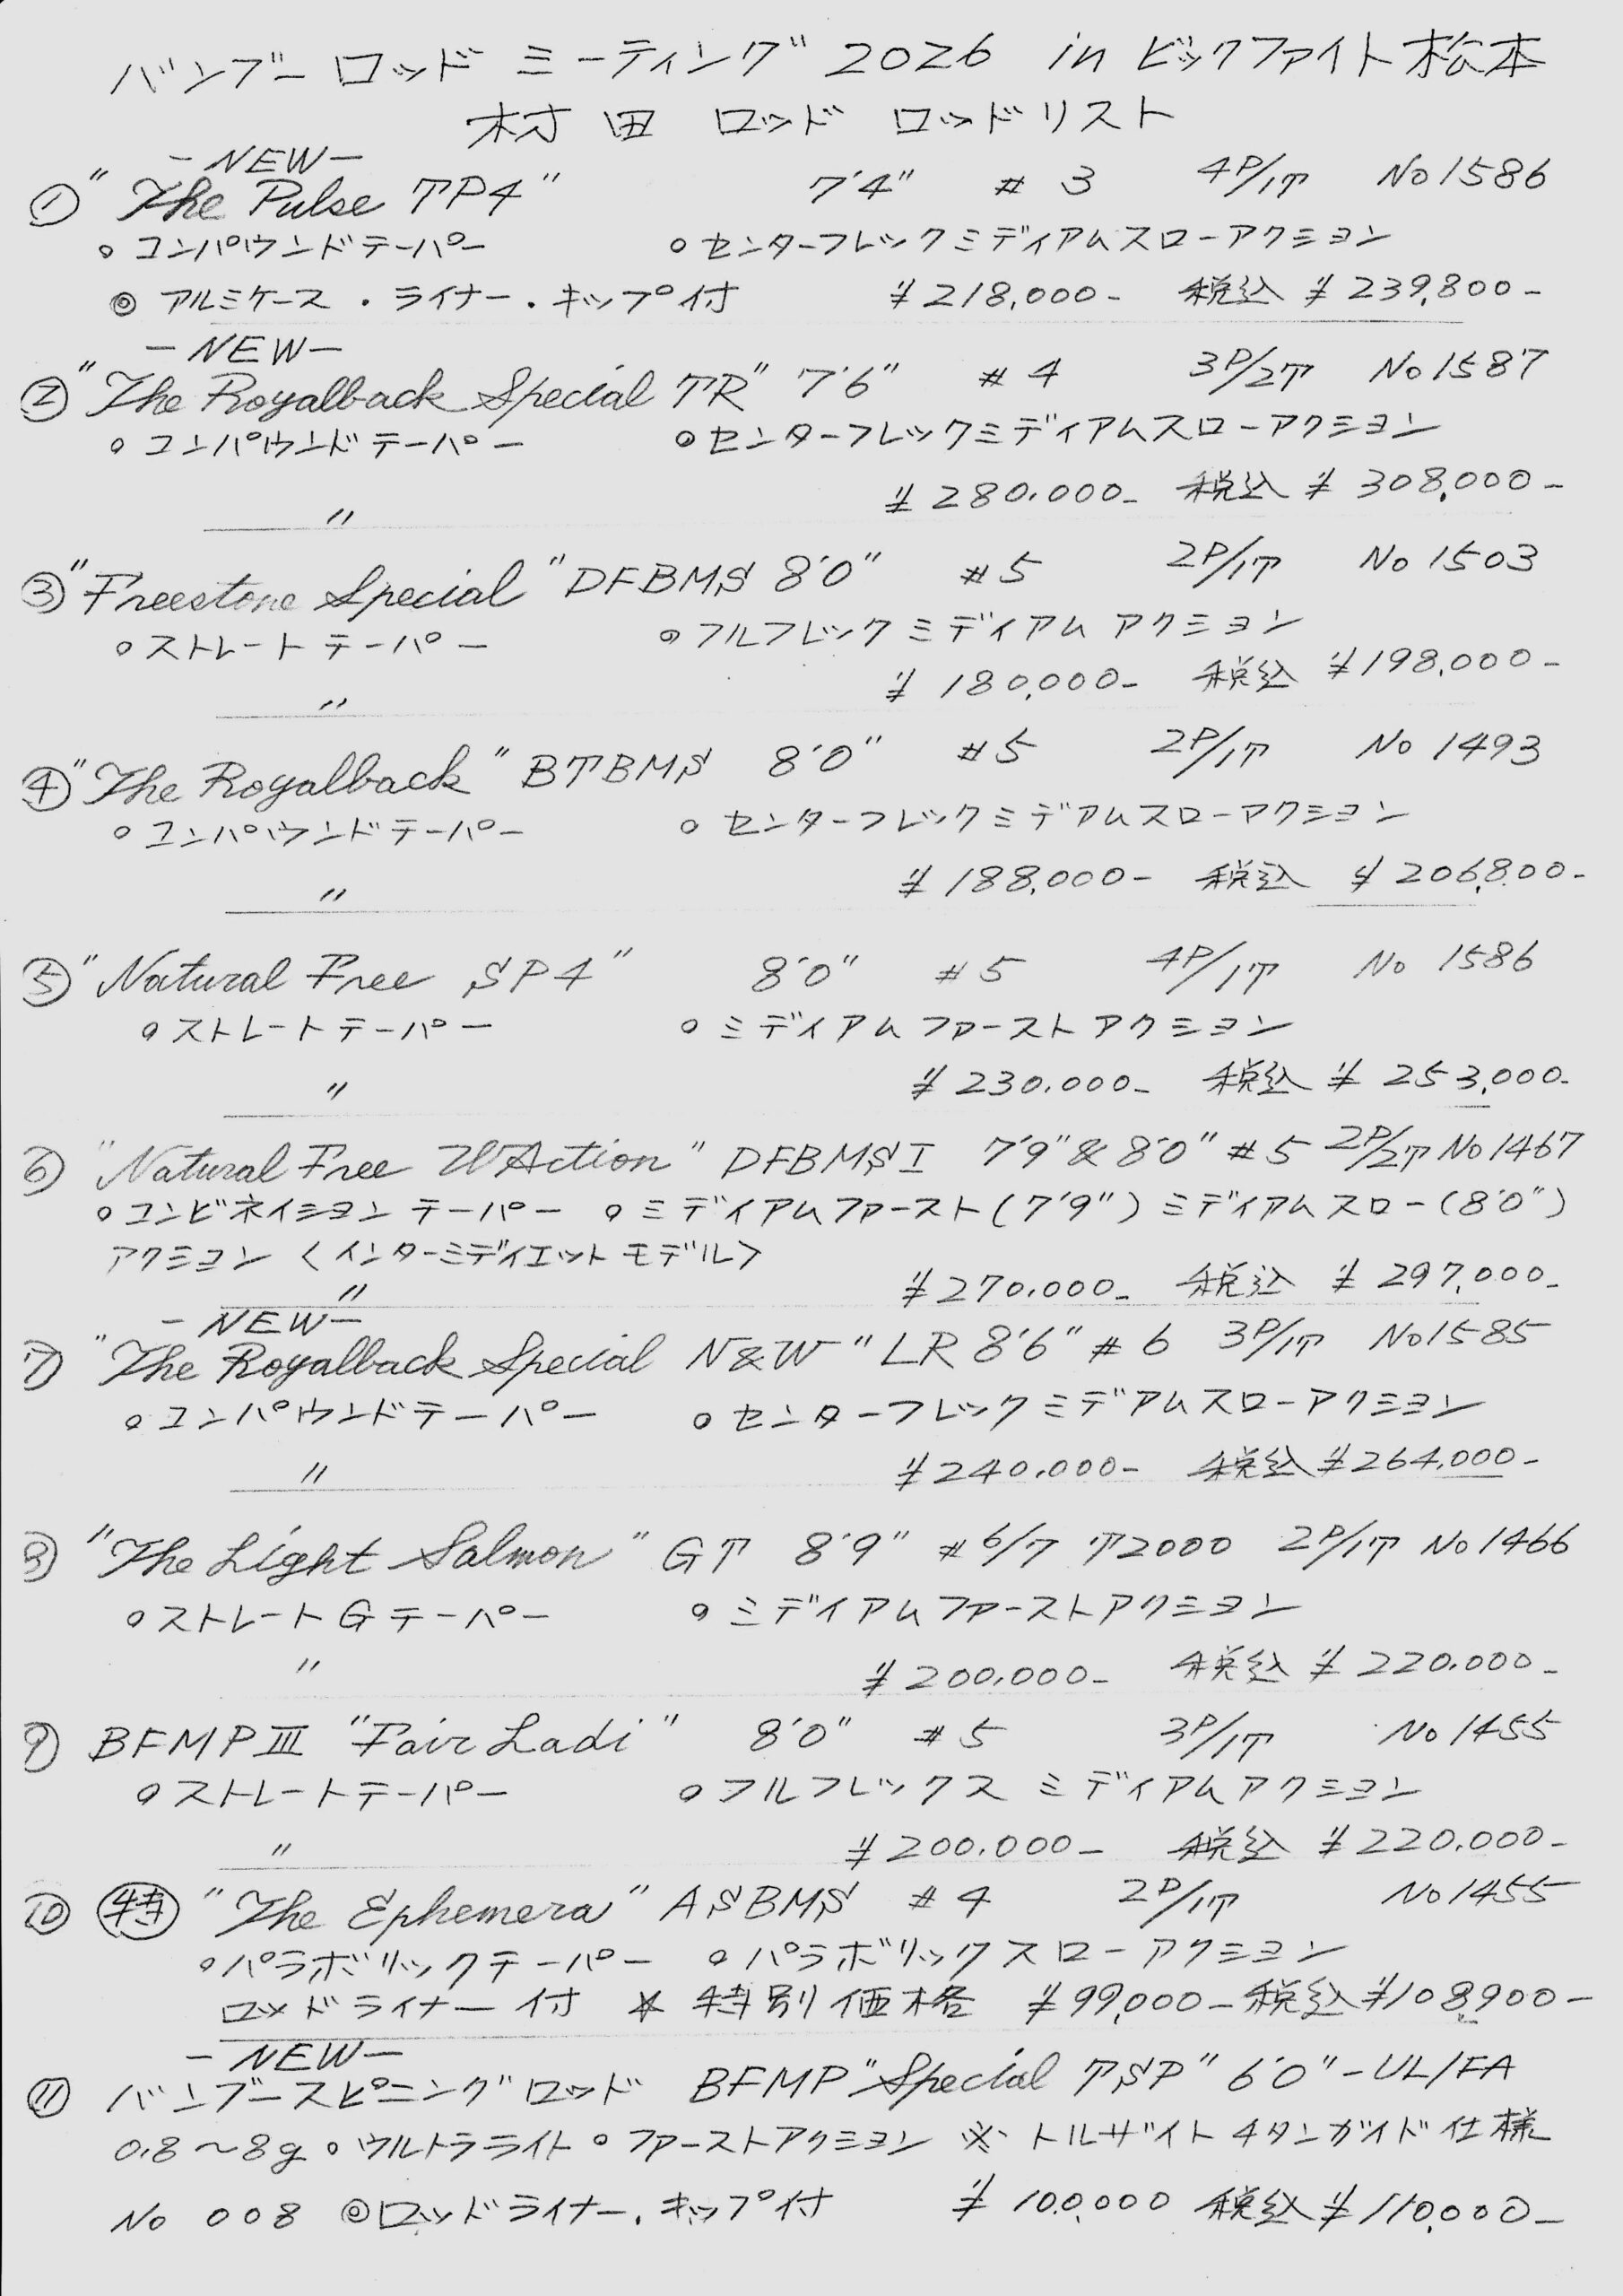 バンブーロッド ミーティング 2026 in ビックファイト松本
村田 ロッド ロッドリスト
-NEW-
① "The Pulse TP4" 7'4" #3 4P/1T No1586
○コンパウンドテーパー ○センターフレックミディアムスローアクション
◎アルミケース・ライナー・キップ付 ¥218,000- 税込 ¥239,800-
-NEW-
② "The Royalback Special TR" 7'6" #4 3P/2T No1587
○コンパウンドテーパー ○センターフレックミディアムスローアクション
¥280.000- 税込 ¥308,000-
〃
③ "Freestone Special" DFBMS 8'0" #5 2P/1T No1503
○ストレートテーパー ○フルフレックミディアムアクション
〃 ¥180,000- 税込 ¥198,000-
④ "The Royalback" BTBMS 8'0" #5 2P/1T No1493
○コンパウンドテーパー ○センターフレックミデアムスローアクション
〃 ¥188,000- 税込 ¥206,800-
⑤ "Natural Free SP4" 8'0" #5 4P/1T No1586
○ストレートテーパー ○ミディアムファーストアクション
〃 ¥230.000- 税込 ¥253,000-
⑥ "Natural Free W Action" DFBMSI 7'9"&8'0" #5 2P/2T No1467
○コンビネイションテーパー ○ミディアムファースト(7'9")ミディアムスロー(8'0")
アクション〈インターミディエットモデル〉
〃 ¥270.000- 税込 ¥297,000-
-NEW-
⑦ "The Royalback Special N&W" LR 8'6" #6 3P/1T No1585
○コンパウンドテーパー ○センターフレックミデアムスローアクション
〃 ¥240.000- 税込 ¥264,000-
⑧ "The Light Salmon" GT 8'9" #6/7 T2000 2P/1T No1466
○ストレートGテーパー ○ミディアムファーストアクション
〃 ¥200,000- 税込 ¥220.000-
⑨ BFMPⅢ "Fair Ladi" 8'0" #5 3P/1T No1455
○ストレートテーパー ○フルフレックスミディアムアクション
〃 ¥200.000- 税込 ¥220.000-
⑩ ㊕ "The Ephemera" ASBMS #4 2P/1T No1455
○パラボリックテーパー ○パラボリックスローアクション
ロッドライナー付 ★特別価格 ¥99,000- 税込 ¥108,900-
-NEW-
⑪ バンブースピニングロッド BFMP "Special TSP" 6'0"-UL/FA
0.8〜8g ○ウルトラライト○ファーストアクション ※トルザイトチタンガイド仕様
No 008 ◎ロッドライナー・キップ付 ¥100,000 税込 ¥110,000-